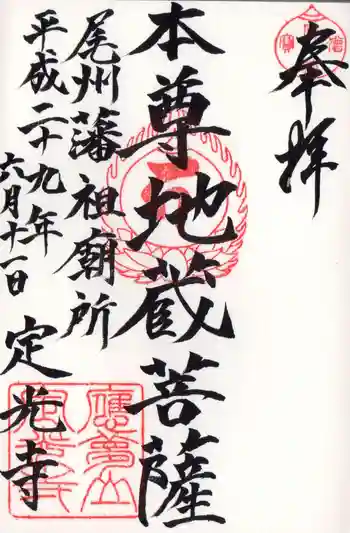 奉拝
本尊地蔵菩薩
尾州藩祖廟所
平成二十九年
六月十一日
定光寺
應夢山